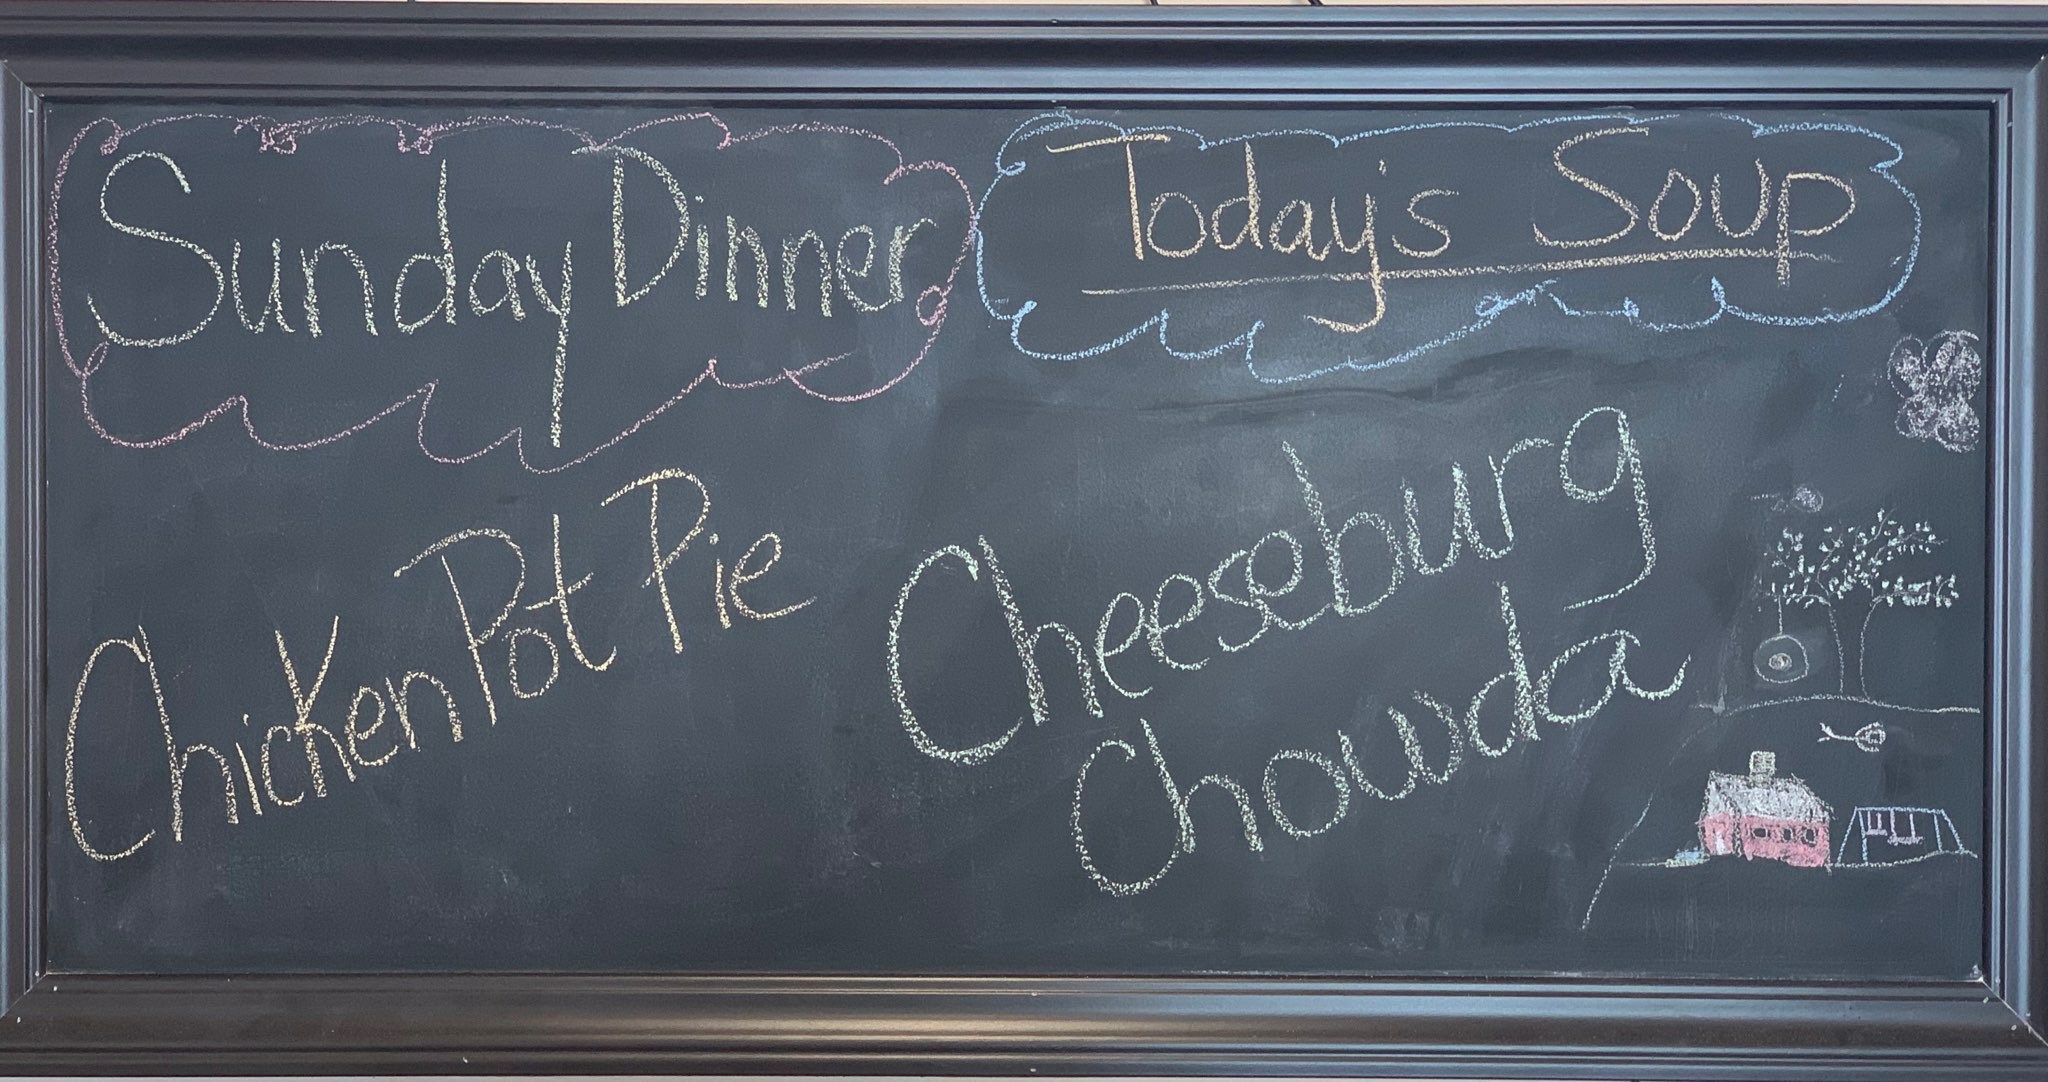 Sunday Dinner
Chicken Pot Pie
Today's Soup
Cheeseburg
Chowda